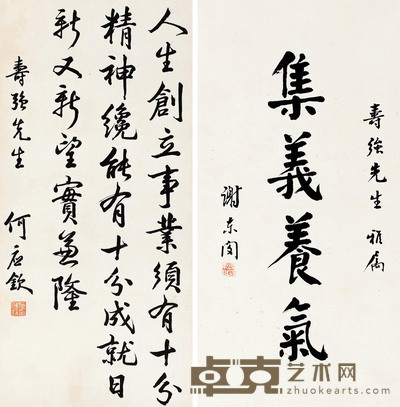 壽強先生 雅屬
集義養氣
謝東閔
人生創立事業須有十分
精神纔能有十分成就日
新又新望實隆
壽強先生 何應欽
卓克艺术网